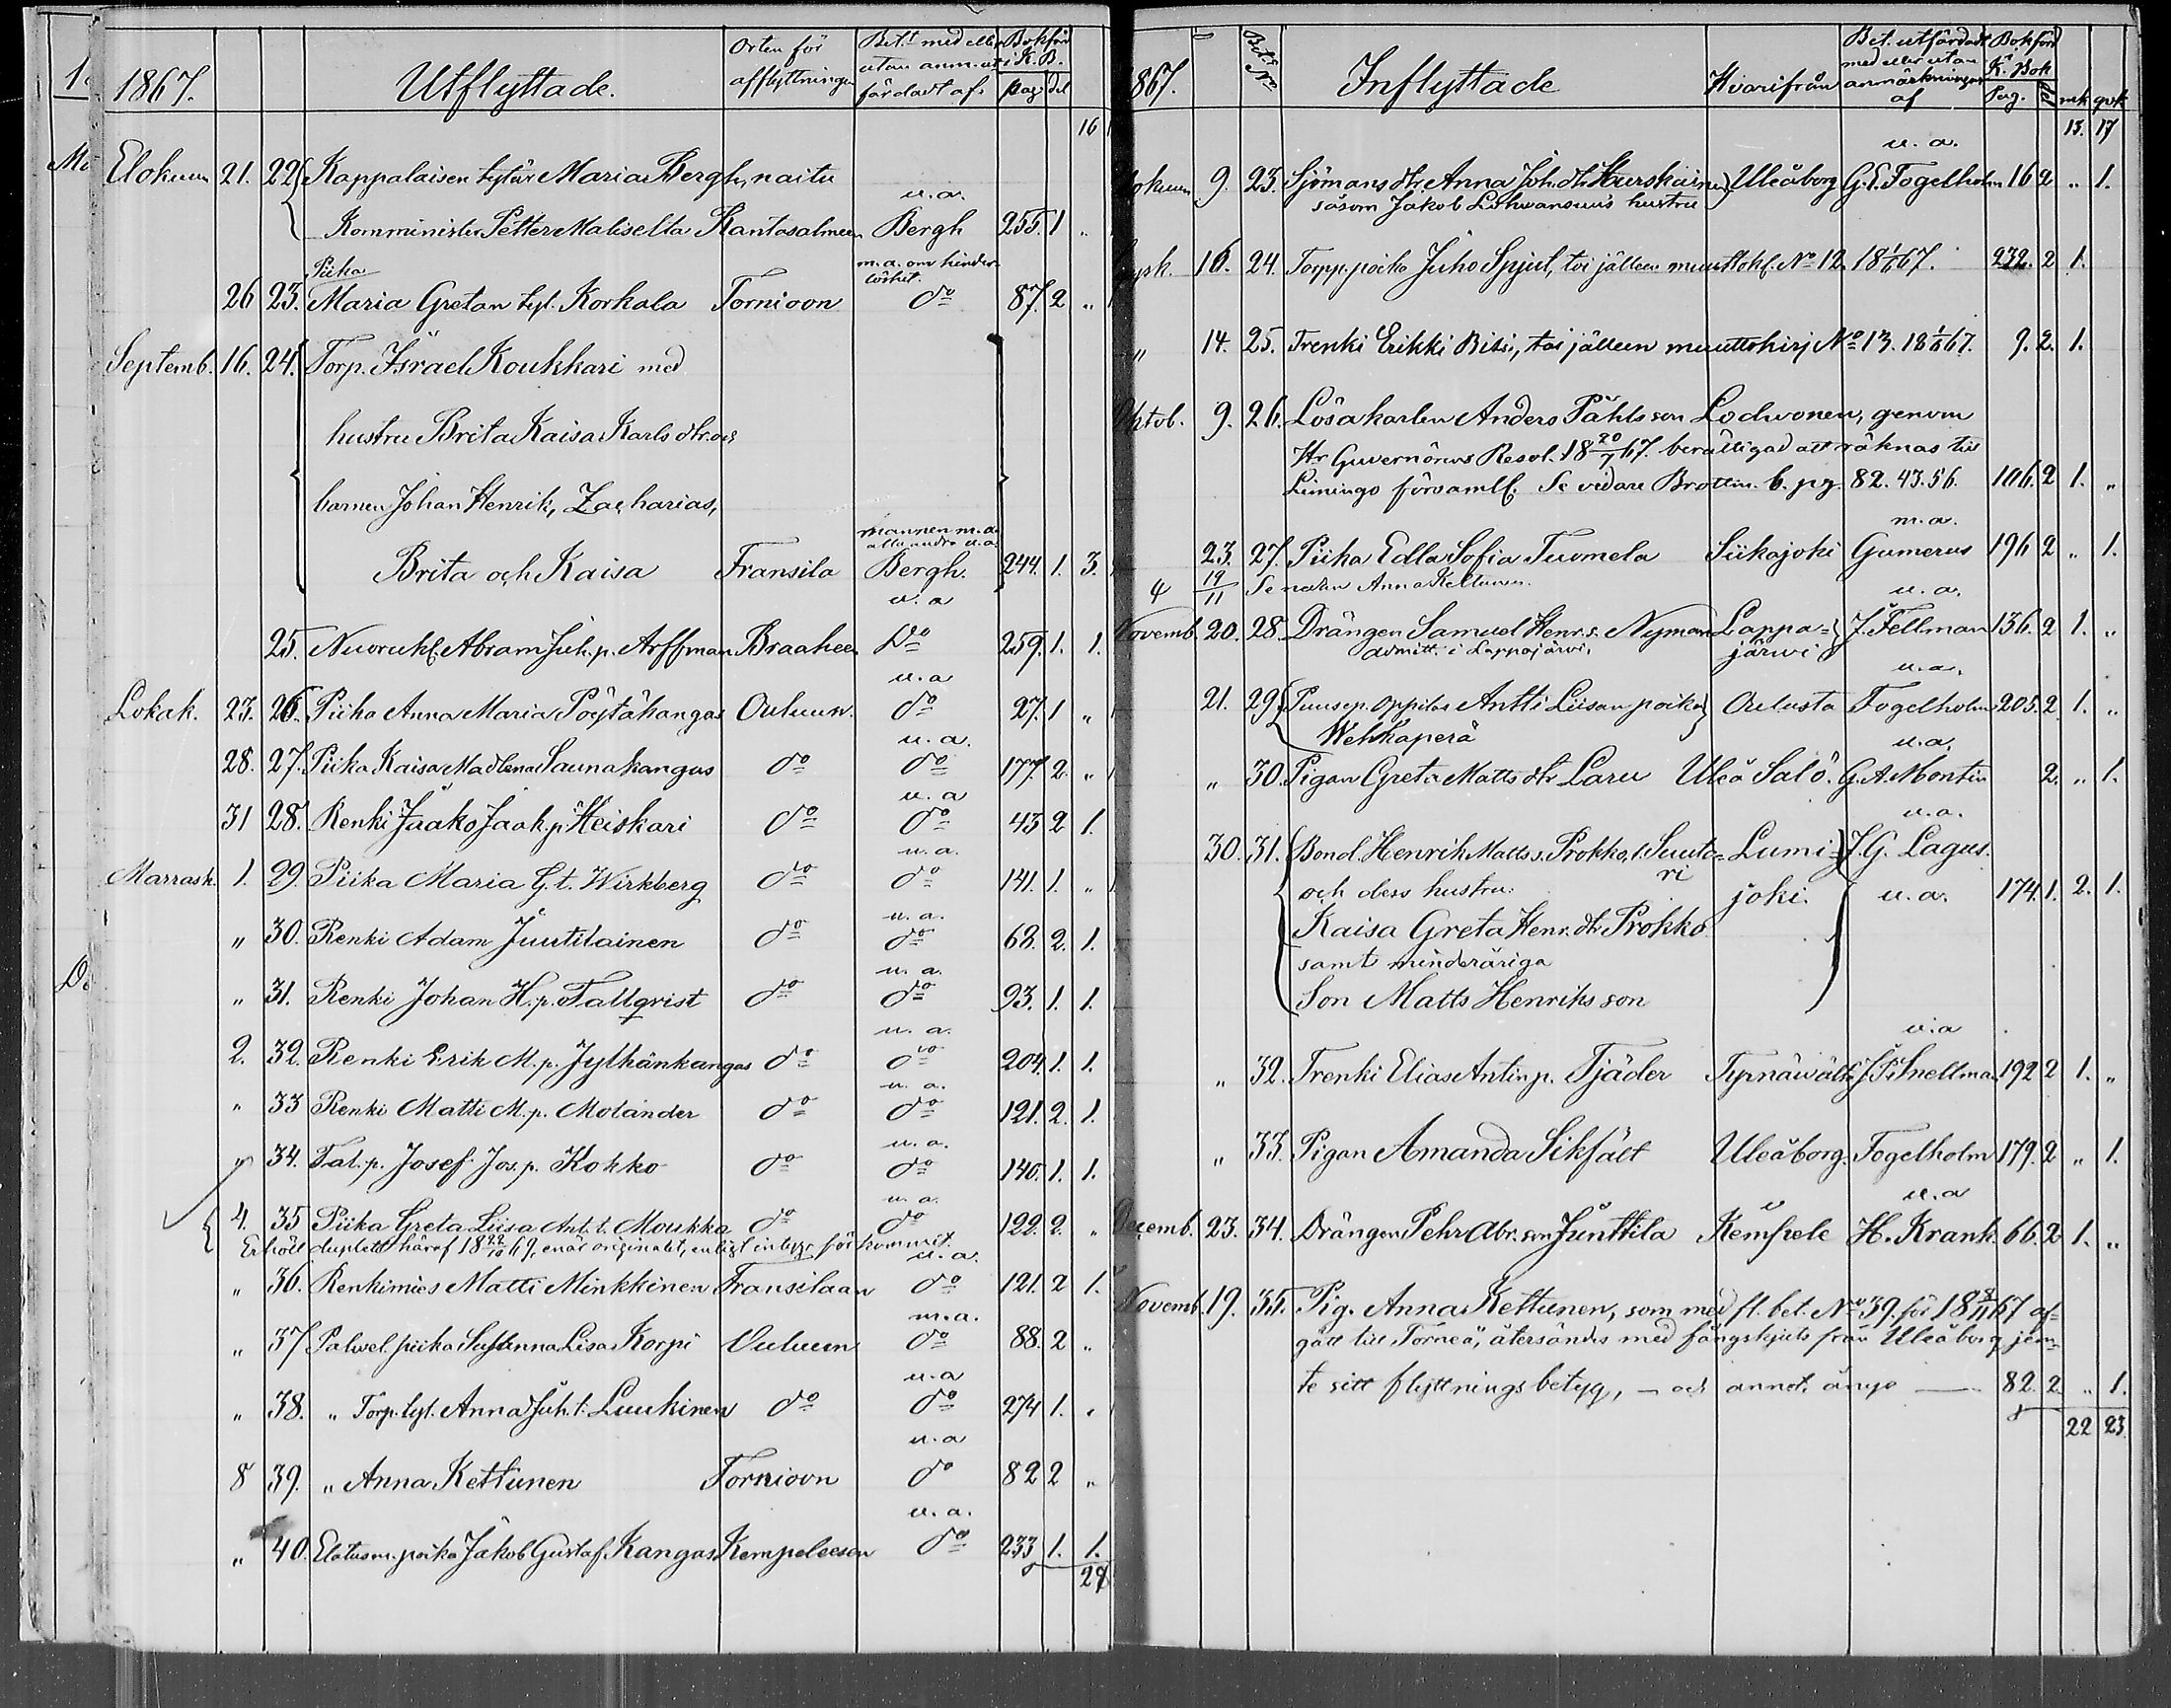 1867. Utflyttade. Orten för afflyttningen Bet:t med eller utan anm. utfärdadt af: Bokförd i K. B. pag. del
16
Elokuun 21. 22 Kappalaisen tytär Maria Bergh, naitu
u. a.
Komminister Petter Maliselta Rantasalmeen Bergh 255. 1 "
Piika m. a. om hinderlöshet.
26 23. Maria Gretan tyt. Korkala Tornioon do 87. 2 "
Septemb. 16. 24. Torp. Israel Koukkari med
hustru Brita Kaisa Karls dtr. och
barnen Johan Henrik, Zacharias,
mannen m. a. alla andra u. a.
Brita och Kaisa Fransila Bergh. 244. 1. 3.
u. a
25. Nuoruk. Abram Juh. p. Arffman Braaheen Do 259. 1. 1.
u. a
Lokak. 23. 26. Piika Anna Maria Pöytäkangas Ouluun. do 27. 1 "
u. a.
28. 27. Piika Kaisa Madlena Saunakangas do do 177. 2. "
u. a
31 28. Renki Jaako Jaak. p. Heiskari do do 43 2 1.
u. a.
Marrask. 1. 29. Piika Maria G. t. Wirkberg do do 141. 1. "
u. a.
" 30. Renki Adam Juutilainen do do 62. 2. 1.
u. a.
" 31. Renki Johan H. p. Tallqvist do do 93. 1. 1.
u. a.
2. 32. Renki Erik M. p. Jylhänkangas do do 204. 1. 1.
u. a.
" 33 Renki Matti M. p. Molander do do 121. 2. 1.
u. a.
" 34. Tal. p. Josef Jos. p. Kokko do do 140. 1. 1.
u. a.
4. 35 Piika Greta Liisa Ant. t. Moukka do do 122. 2. "
Erhöll duplett häraf 18 22/10 69, enär originalet, enligt intyg, förkommit.
u. a.
" 36. Renkimies Matti Minkkinen Fransilaan do 121. 2 1.
m. a.
" 37 Palwel. piika Susanna Lisa Korpi Ouluun do 88. 2 "
u. a
" 38. " Torp. tyt. Anna Juh. t. Luukinen do do 274 1. "
u. a
8 39. " Anna Kettunen Tornioon do 82 2 "
u. a.
" 40. Elatusm. poika Jakob Gustaf Kangas Kempeleesen do 233 1. 1.
28
1867. Bet:s No Inflyttade Hvarifrån Bet. utfärdadt med eller utan anmärkningar af Bokförd K. Bok Pag. del mk qvk
15. 17
u. a.
Elokuun 9. 23. Sjömans dtr. Anna Joh. dtr Hurskainen Uleåborg G. E. Fogelholm 16 2 " 1.
såsom Jakob Lohwansuus hustru
Syysk. 16. 24. Torpp. poika Juho Spjut, toi jälleen muuttok. No 12. 18 1/6 67. 232. 2 1.
" 14. 25. Trenki Erikki Bisi, toi jälleen muuttokirj No 13. 18 1/6 67. 9. 2. 1.
Oktob. 9. 26. Lösakarlen Anders Påhls son Lodwonen, genom
Hr Guvernörens Resol. 18 20/7 67. berättigad att räknas till
Limingo församl. Se vidare Brottm. b. pg. 82. 43. 56. 106. 2 1. "
m. a.
23. 27. Piika Edla Sofia Tuomela Siikajoki Gumerus 196 2 " 1.
19/11 Se nedan Anna Kettunen.
u. a.
Novemb. 20. 28. Drängen Samuel Henr. s. Nyman Lappajärwi J. Fellman 136. 2 1. "
admitt. i Lappajärvi.
u. a.
21. 29 Puusep. Oppilas Antti Liisan poika Oulusta Fogelholm 205. 2. 1. "
Wehkaperä
u. a.
" 30. Pigan Greta Matts dtr Laru Uleå Salö. G. A. Montin 2. " 1.
u. a.
30. 31. Bond. Henrik Matts s. Prokko, l. Suutari Lumijoki. J. G. Lagus.
och dess hustru: u. a. 174. 1. 2. 1.
Kaisa Greta Henr. dtr Prokko
samt minderåriga
Son Matts Henriks son
u. a
" 32. Trenki Elias Antinp. Tjäder Tyrnäwältä J. F. Snellman 192 2 1. "
" 33. Pigan Amanda Sikfält Uleåborg. Fogelholm 179. 2 " 1.
u. a
Decemb. 23. 34. Drängen Pehr Abr. son Junttila Kempele H. Krank. 66. 2 1. "
Novemb. 19. 35. Pig. Anna Kettunen, som med fl. bet. No 39. för 18 8/11 67 af-
gått till Torneå, återsändes med fångskjuts från Uleåborg jem-
te sitt flyttningsbetyg, — och annot. ånyo — 82. 2. " 1.
22 23